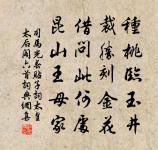 種桃臨玉井
裁勝刻金花
借問此何處
昆山王母家
司馬光春貼子詞太皇
太后閣六首詞典網